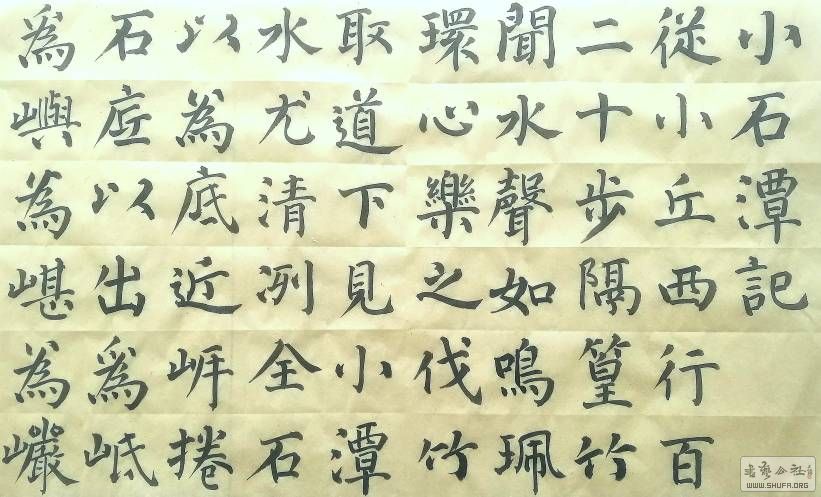 小石潭記
從小丘西行百
二十步隔篁竹
聞水聲如鳴珮
環心樂之伐竹
取道下見小潭
水尤清冽全石
以為底近岸捲
石底以出為岻
為嶼為嵁為巗
WWW.SHUFA.ORG